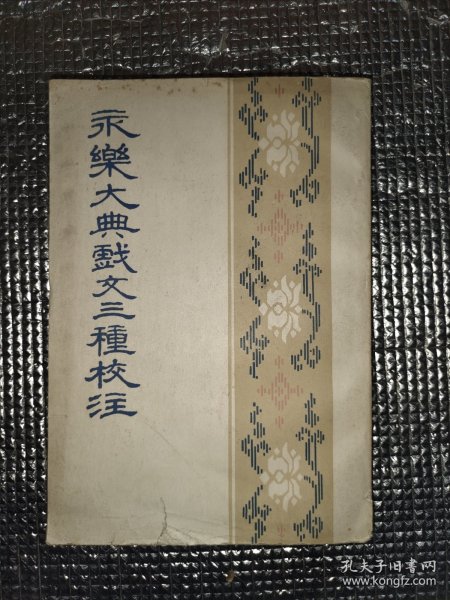 永樂大典戲文三種校注
孔夫子旧书网
www.kongfz.com